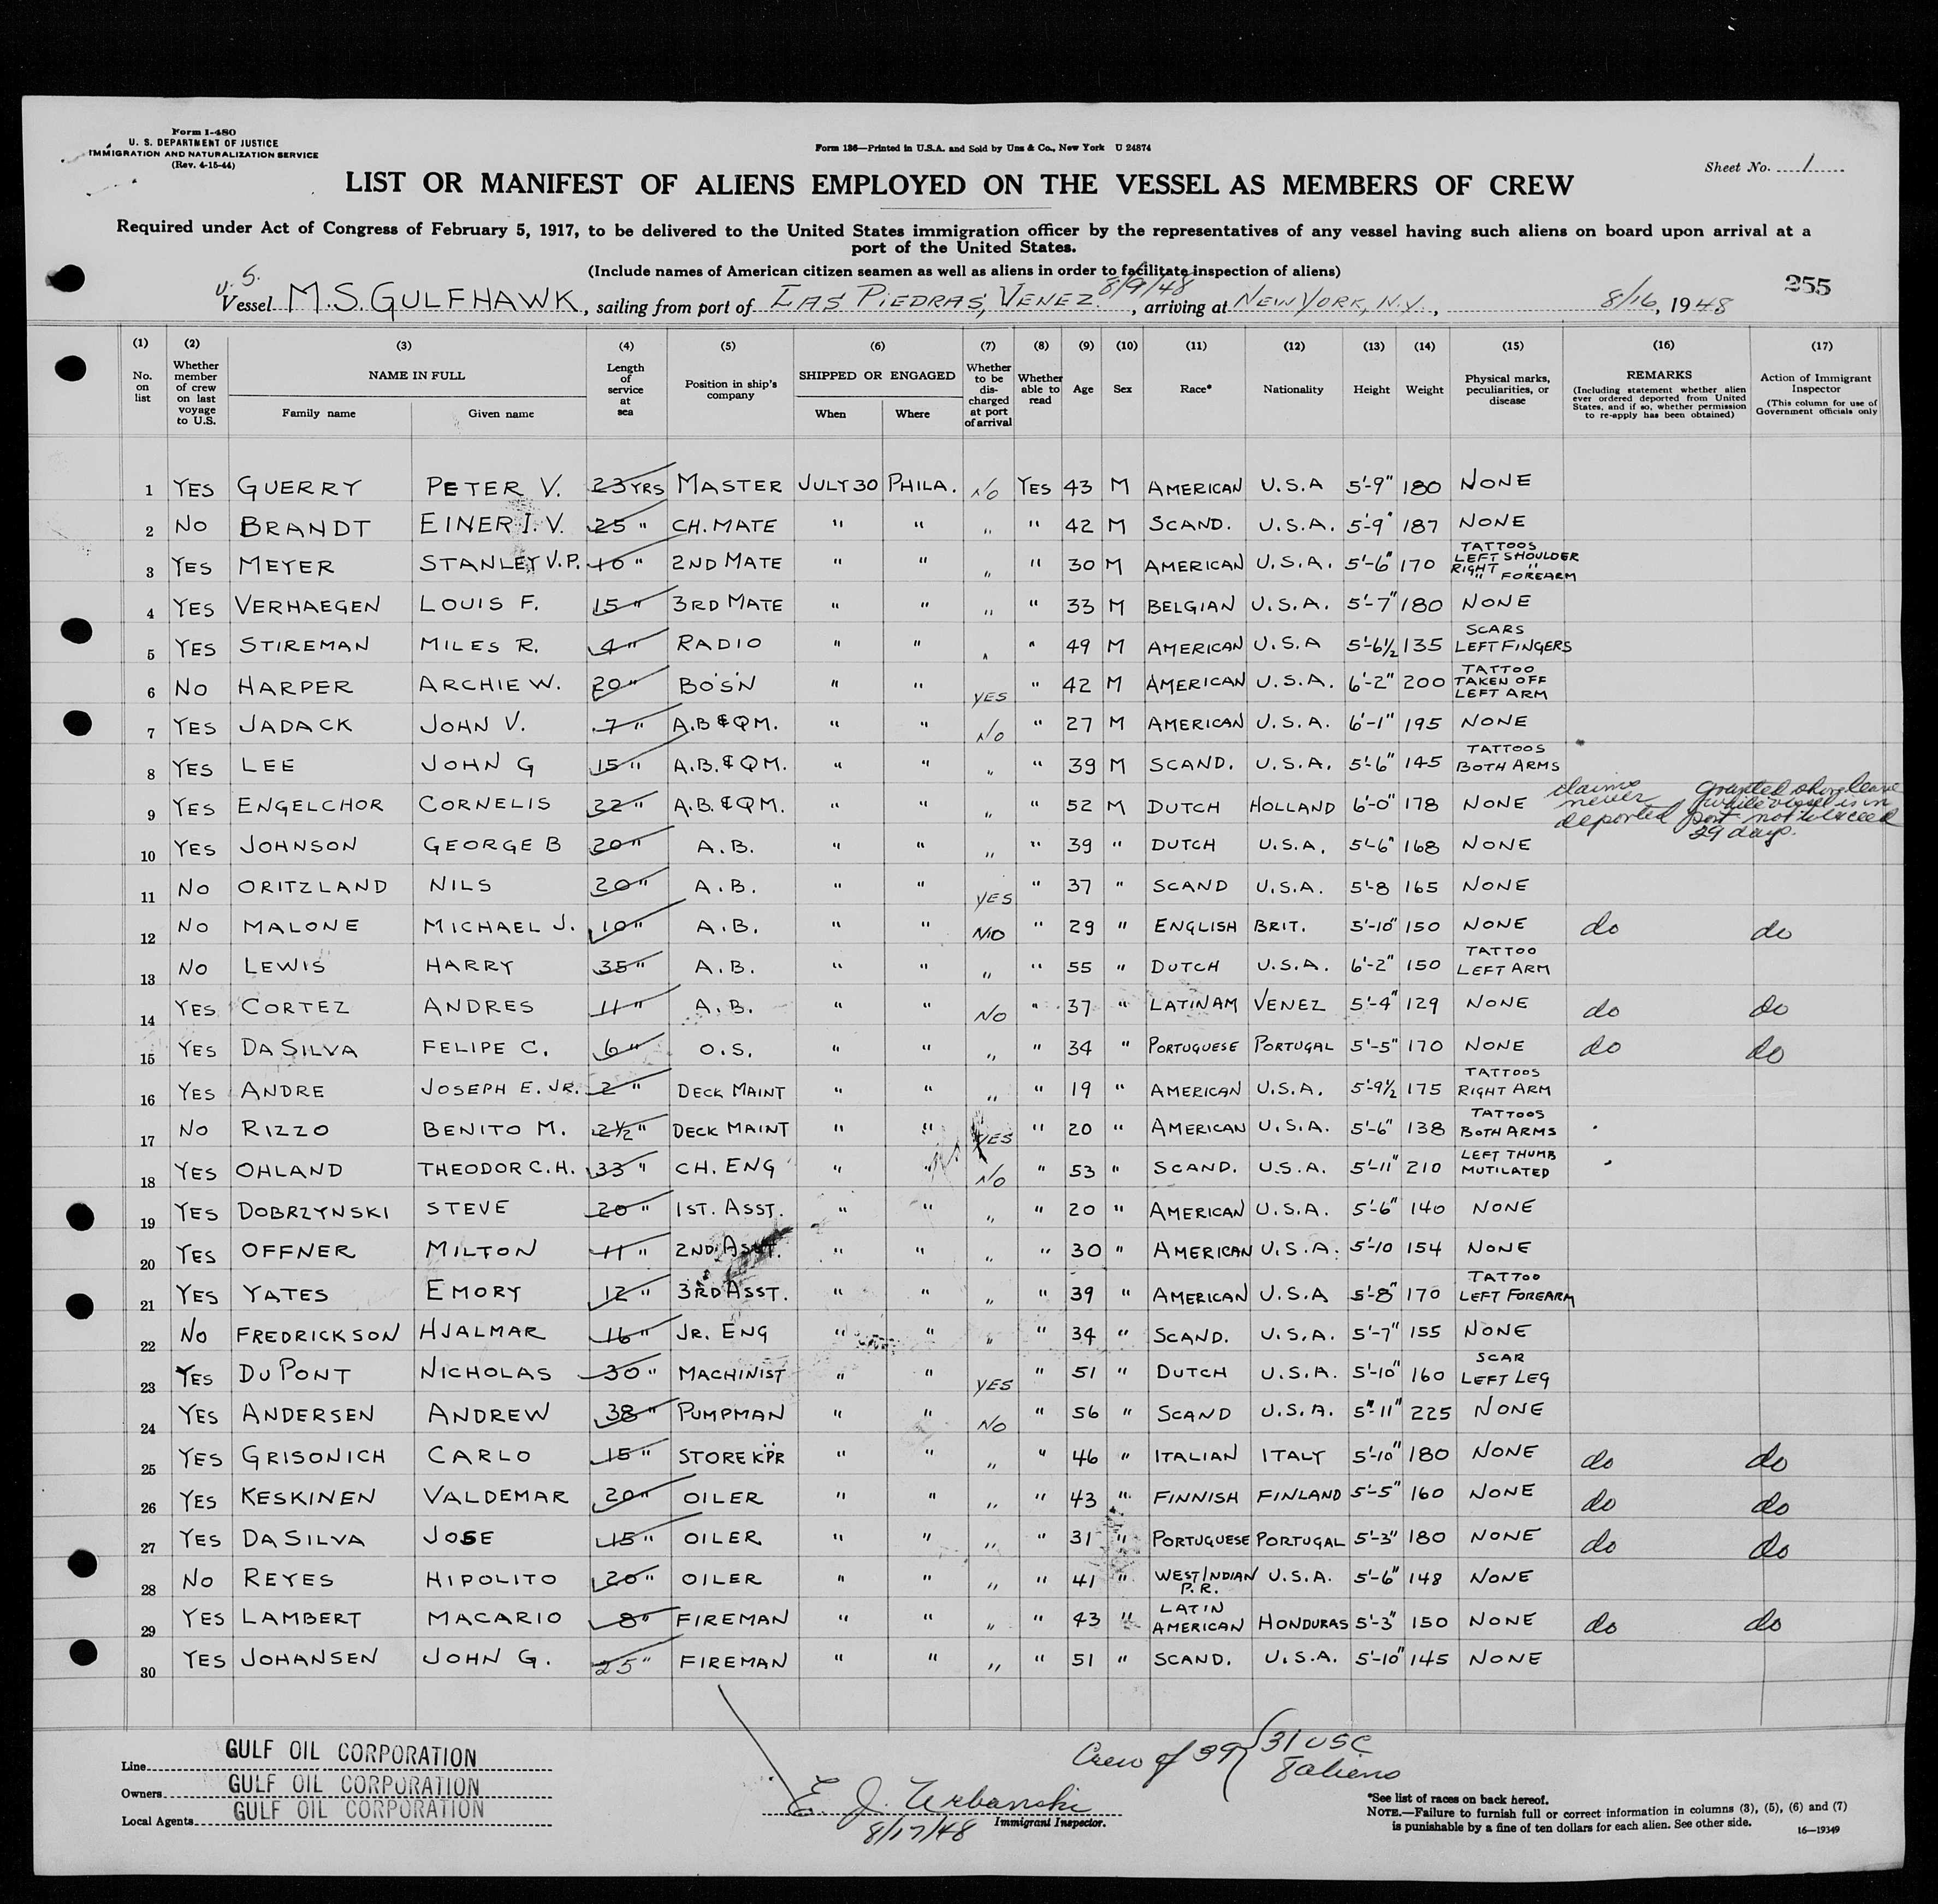 Form I-480
U. S. DEPARTMENT OF JUSTICE
IMMIGRATION AND NATURALIZATION SERVICE
(Rev. 4-15-44)
Form 136—Printed in U.S.A. and Sold by Unz & Co., New York U 24874
Sheet No. 1
LIST OR MANIFEST OF ALIENS EMPLOYED ON THE VESSEL AS MEMBERS OF CREW
Required under Act of Congress of February 5, 1917, to be delivered to the United States immigration officer by the representatives of any vessel having such aliens on board upon arrival at a
port of the United States.
(Include names of American citizen seamen as well as aliens in order to facilitate inspection of aliens)
255
U.S. Vessel M.S. GULFHAWK, sailing from port of LAS PIEDRAS, VENEZ. 8/9/48, arriving at NEW YORK, N.Y., 8/16, 1948
(1) (2) (3) (4) (5) (6) (7) (8) (9) (10) (11) (12) (13) (14) (15) (16) (17)
No. on list
Whether member of crew on last voyage to U.S.
NAME IN FULL
Family name
Given name
Length of service at sea
Position in ship's company
SHIPPED OR ENGAGED
When
Where
Whether to be discharged at port of arrival
Whether able to read
Age
Sex
Race*
Nationality
Height
Weight
Physical marks, peculiarities, or disease
REMARKS
(Including statement whether alien ever ordered deported from United States, and if so, whether permission to re-apply has been obtained)
Action of Immigrant Inspector
(This column for use of Government officials only)
1 YES GUERRY PETER V. 23 YRS MASTER JULY 30 PHILA. NO YES 43 M AMERICAN U.S.A 5'-9" 180 NONE
2 NO BRANDT EINER I. V. 25 " CH. MATE " " " " 42 M SCAND. U.S.A. 5'-9" 187 NONE
3 YES MEYER STANLEY V.P. 10 " 2ND MATE " " " " 30 M AMERICAN U.S.A. 5'-6" 170 TATTOOS LEFT SHOULDER RIGHT " " FOREARM
4 YES VERHAEGEN LOUIS F. 15 " 3RD MATE " " " " 33 M BELGIAN U.S.A. 5'-7" 180 NONE
5 YES STIREMAN MILES R. 4 " RADIO " " " " 49 M AMERICAN U.S.A 5'-6½ 135 SCARS LEFT FINGERS
6 NO HARPER ARCHIE W. 20 " BO'S'N " " YES " 42 M AMERICAN U.S.A. 6'-2" 200 TATTOO TAKEN OFF LEFT ARM
7 YES JADACK JOHN V. 7 " A.B & QM. " " NO " 27 M AMERICAN U.S.A. 6'-1" 195 NONE
8 YES LEE JOHN G 15 " A.B. & QM. " " " " 39 M SCAND. U.S.A. 5'-6" 145 TATTOOS BOTH ARMS
9 YES ENGELCHOR CORNELIS 22 " A.B. & QM. " " " " 52 M DUTCH HOLLAND 6'-0" 178 NONE claims never deported granted shore leave while vessel is in port not to exceed 29 days.
10 YES JOHNSON GEORGE B 20 " A.B. " " " " 39 " DUTCH U.S.A. 5'-6" 168 NONE
11 NO ORITZLAND NILS 20 " A.B. " " YES " 37 " SCAND U.S.A. 5'-8 165 NONE
12 NO MALONE MICHAEL J. 10 " A.B. " " NO " 29 " ENGLISH BRIT. 5'-10" 150 NONE do do
13 NO LEWIS HARRY 35 " A.B. " " " " 55 " DUTCH U.S.A. 6'-2" 150 TATTOO LEFT ARM
14 YES CORTEZ ANDRES 11 " A.B. " " NO " 37 " LATIN AM VENEZ 5'-4" 129 NONE do do
15 YES DA SILVA FELIPE C. 6 " O.S. " " " " 34 " PORTUGUESE PORTUGAL 5'-5" 170 NONE do do
16 YES ANDRE JOSEPH E. JR. 2 " DECK MAINT " " " " 19 " AMERICAN U.S.A. 5'-9½ 175 TATTOOS RIGHT ARM
17 NO RIZZO BENITO M. 2½ " DECK MAINT " " YES " 20 " AMERICAN U.S.A. 5'-6" 138 TATTOOS BOTH ARMS
18 YES OHLAND THEODOR C.H. 33 " CH. ENG " " NO " 53 " SCAND. U.S.A. 5'-11" 210 LEFT THUMB MUTILATED
19 YES DOBRZYNSKI STEVE 20 " 1ST. ASST. " " " " 20 " AMERICAN U.S.A. 5'-6" 140 NONE
20 YES OFFNER MILTON 11 " 2ND. ASST. " " " " 30 " AMERICAN U.S.A. 5'-10 154 NONE
21 YES YATES EMORY 12 " 3RD ASST. " " " " 39 " AMERICAN U.S.A 5'-8" 170 TATTOO LEFT FOREARM
22 NO FREDRICKSON HJALMAR 16 " JR. ENG " " " " 34 " SCAND. U.S.A. 5'-7" 155 NONE
23 YES DU PONT NICHOLAS 30 " MACHINIST " " YES " 51 " DUTCH U.S.A. 5'-10" 160 SCAR LEFT LEG
24 YES ANDERSEN ANDREW 38 " PUMPMAN " " NO " 56 " SCAND U.S.A. 5'-11" 225 NONE
25 YES GRISONICH CARLO 15 " STORE K'P'R " " " " 46 " ITALIAN ITALY 5'-10" 180 NONE do do
26 YES KESKINEN VALDEMAR 20 " OILER " " " " 43 " FINNISH FINLAND 5'-5" 160 NONE do do
27 YES DA SILVA JOSE 15 " OILER " " " " 31 " PORTUGUESE PORTUGAL 5'-3" 180 NONE do do
28 NO REYES HIPOLITO 20 " OILER " " " " 41 " WEST INDIAN P.R. U.S.A. 5'-6" 148 NONE
29 YES LAMBERT MACARIO 8 " FIREMAN " " " " 43 " LATIN AMERICAN HONDURAS 5'-3" 150 NONE do do
30 YES JOHANSEN JOHN G. 25 " FIREMAN " " " " 51 " SCAND. U.S.A. 5'-10" 145 NONE
Line GULF OIL CORPORATION
Owners GULF OIL CORPORATION
Local Agents GULF OIL CORPORATION
Crew of 39 (31 USC
8 aliens
E. J. Urbanski
Immigrant Inspector.
8/17/48
*See list of races on back hereof.
NOTE.—Failure to furnish full or correct information in columns (3), (5), (6) and (7)
is punishable by a fine of ten dollars for each alien. See other side.
16—19349